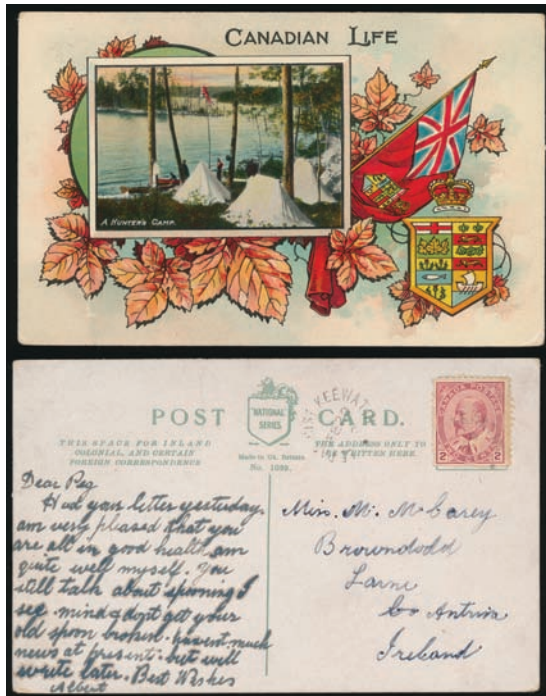 CANADIAN LIFE
A HUNTER'S CAMP.
POST CARD.
NATIONAL
SERIES
THIS SPACE FOR INLAND
COLONIAL, AND CERTAIN
FOREIGN CORRESPONDENCE
Made in Gt. Britain
No. 1099.
THE ADDRESS ONLY TO
BE WRITTEN HERE.
KEEWAT
CANADA POSTAGE
2 2
Dear Peg
Had your letter yesterday
am very pleased that you
are all in good health am
quite well myself. you
will talk about spooning I
see. mind & dont get your
old spoon broken. havent much
news at present. but will
write later. Best Wishes
Albert
Miss. M. McCarey
Browndodd
Larne
Co Antrim
Ireland